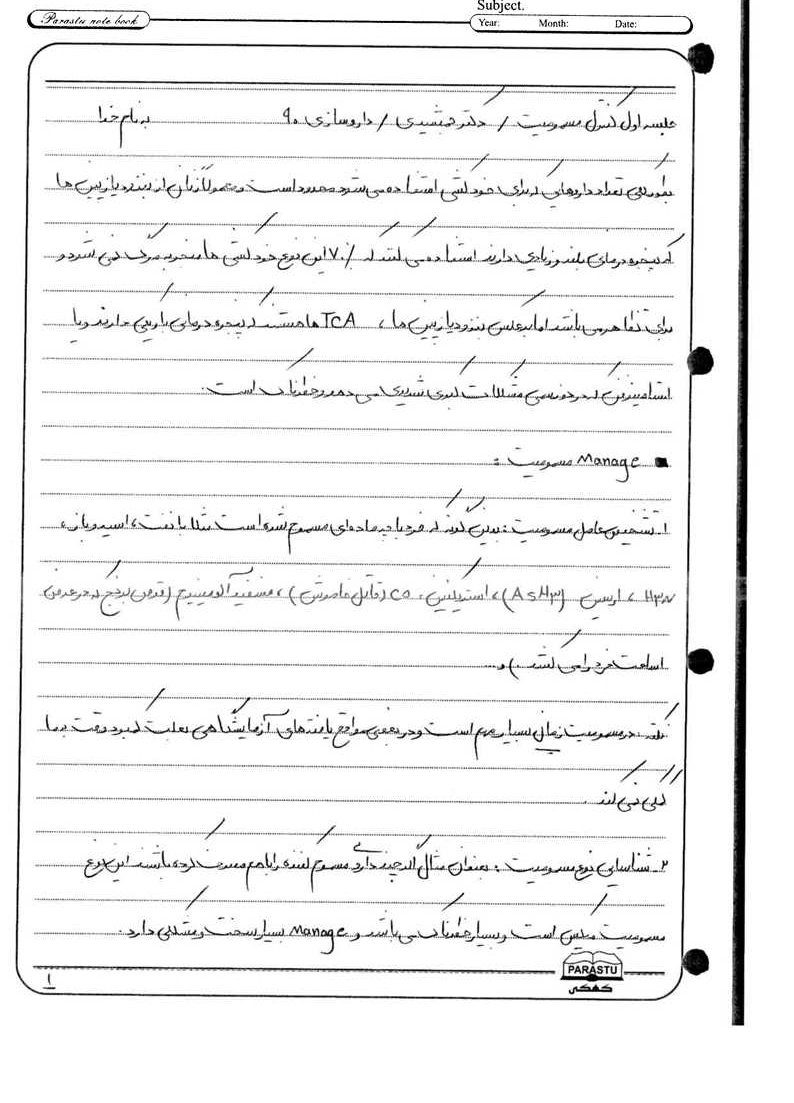 Parastu note book
Subject.
Year: Month: Date:
جلسه اول کنترل مسمومیت / دکتر جمشیدی / داروسازی ۹۰ به نام خدا
بطور کلی تعداد داروهایی که برای خودکشی استفاده می شود محدود است و معمولاً زنان از بنزودیازپین ها
که پنجره درمانی بلند و زیادی دارند استفاده می کنند که ۷۰٪ این نوع خودکشی ها منجر به مرگ نمی شود و
برای تظاهر می باشد اما برعکس بنزودیازپین ها ، TCA ها هستند که پنجره درمانی باریکی دارند و یا
استامینوفن که در دوز سمی مشکلات کبدی شدیدی می دهد و خطرناک است.
Manage مسمومیت :
۱. تشخیص عامل مسمومیت : ببین گونه که فرد با چه ماده ای مسموم شده است مثلا با نفت ، اسید و باز ،
H۳N ، ارسین (AsH۳) ، استریکنین ، CO (قاتل خاموش) ، فسفید آلومینیوم (قرص برنج که در عرض
۱ ساعت فرد را می کشد .) و...
نکته: در مسمومیت زمان بسیار مهم است و در بعضی مواقع یافته های آزمایشگاهی بعلت کمبود وقت به ما
کمکی نمی کند .
۲. شناسایی نوع مسمومیت : بعنوان مثال اگر چند داروی مسموم کننده را با هم مصرف کرده باشند این نوع
مسمومیت میکس است و بسیار خطرناک می باشد و Manage بسیار سخت و مشکلی دارد .
PARASTU
۱